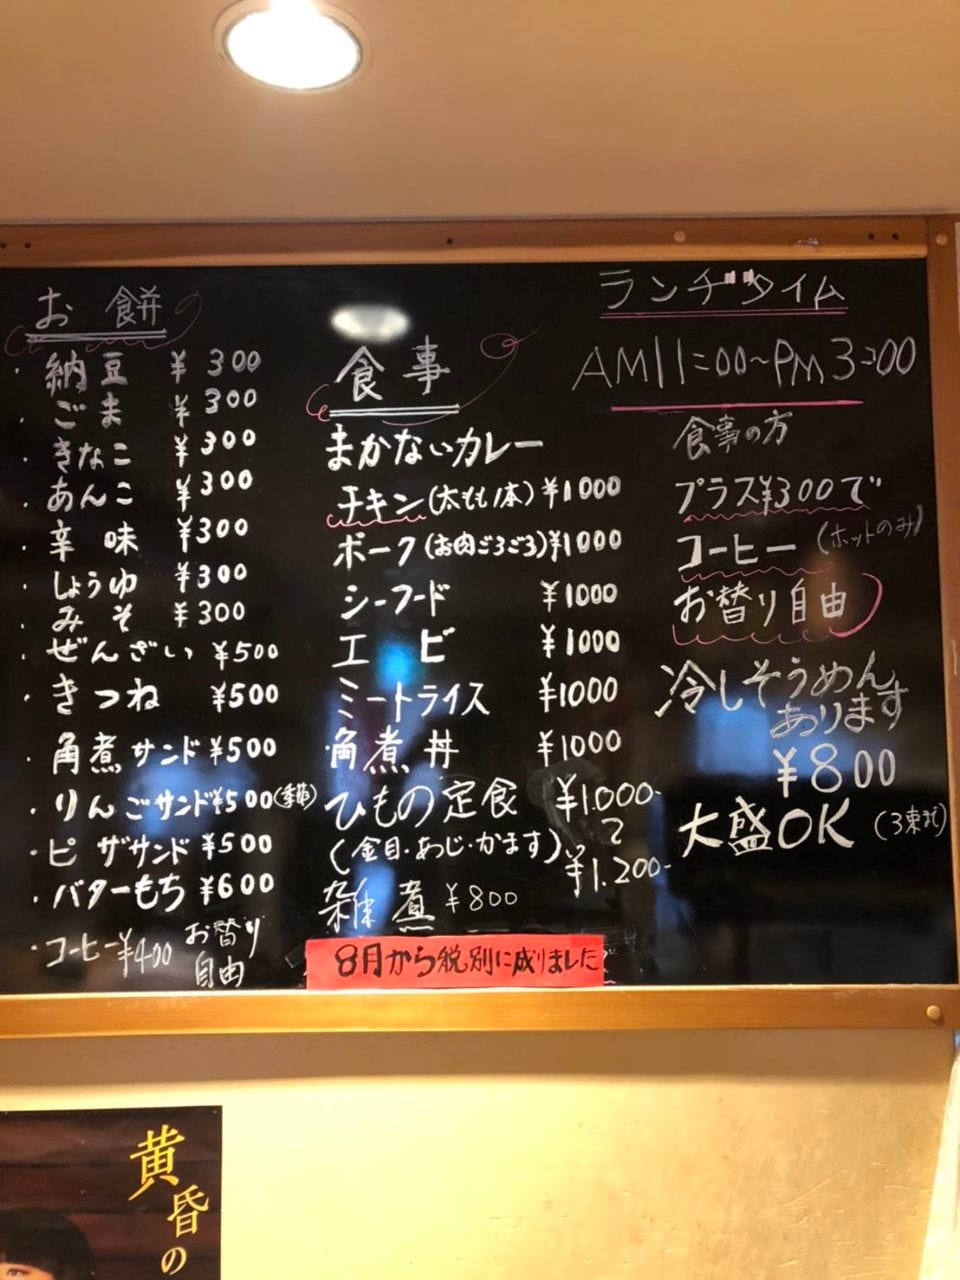 お餅
・納豆 ¥300
・ごま ¥300
・きなこ ¥300
・あんこ ¥300
・辛味 ¥300
・しょうゆ ¥300
・みそ ¥300
・ぜんざい ¥500
・きつね ¥500
・角煮サンド ¥500
・りんごサンド ¥500(季節)
・ピザサンド ¥500
・バターもち ¥600
・コーヒー ¥400 お替り自由
食事
まかないカレー
チキン(太もも1本) ¥1000
ポーク(お肉ごろごろ) ¥1000
シーフード ¥1000
エビ ¥1000
ミートライス ¥1000
角煮丼 ¥1000
ひもの定食 ¥1.000-
(金目・あじ・かます) 〜¥1.200-
雑煮 ¥800
8月から税別に成りました
ランチタイム
AM11:00〜PM3:00
食事の方
プラス¥300で
コーヒー(ホットのみ)
お替り自由
冷しそうめん
あります
¥800
大盛OK(3束まで)
黄昏の